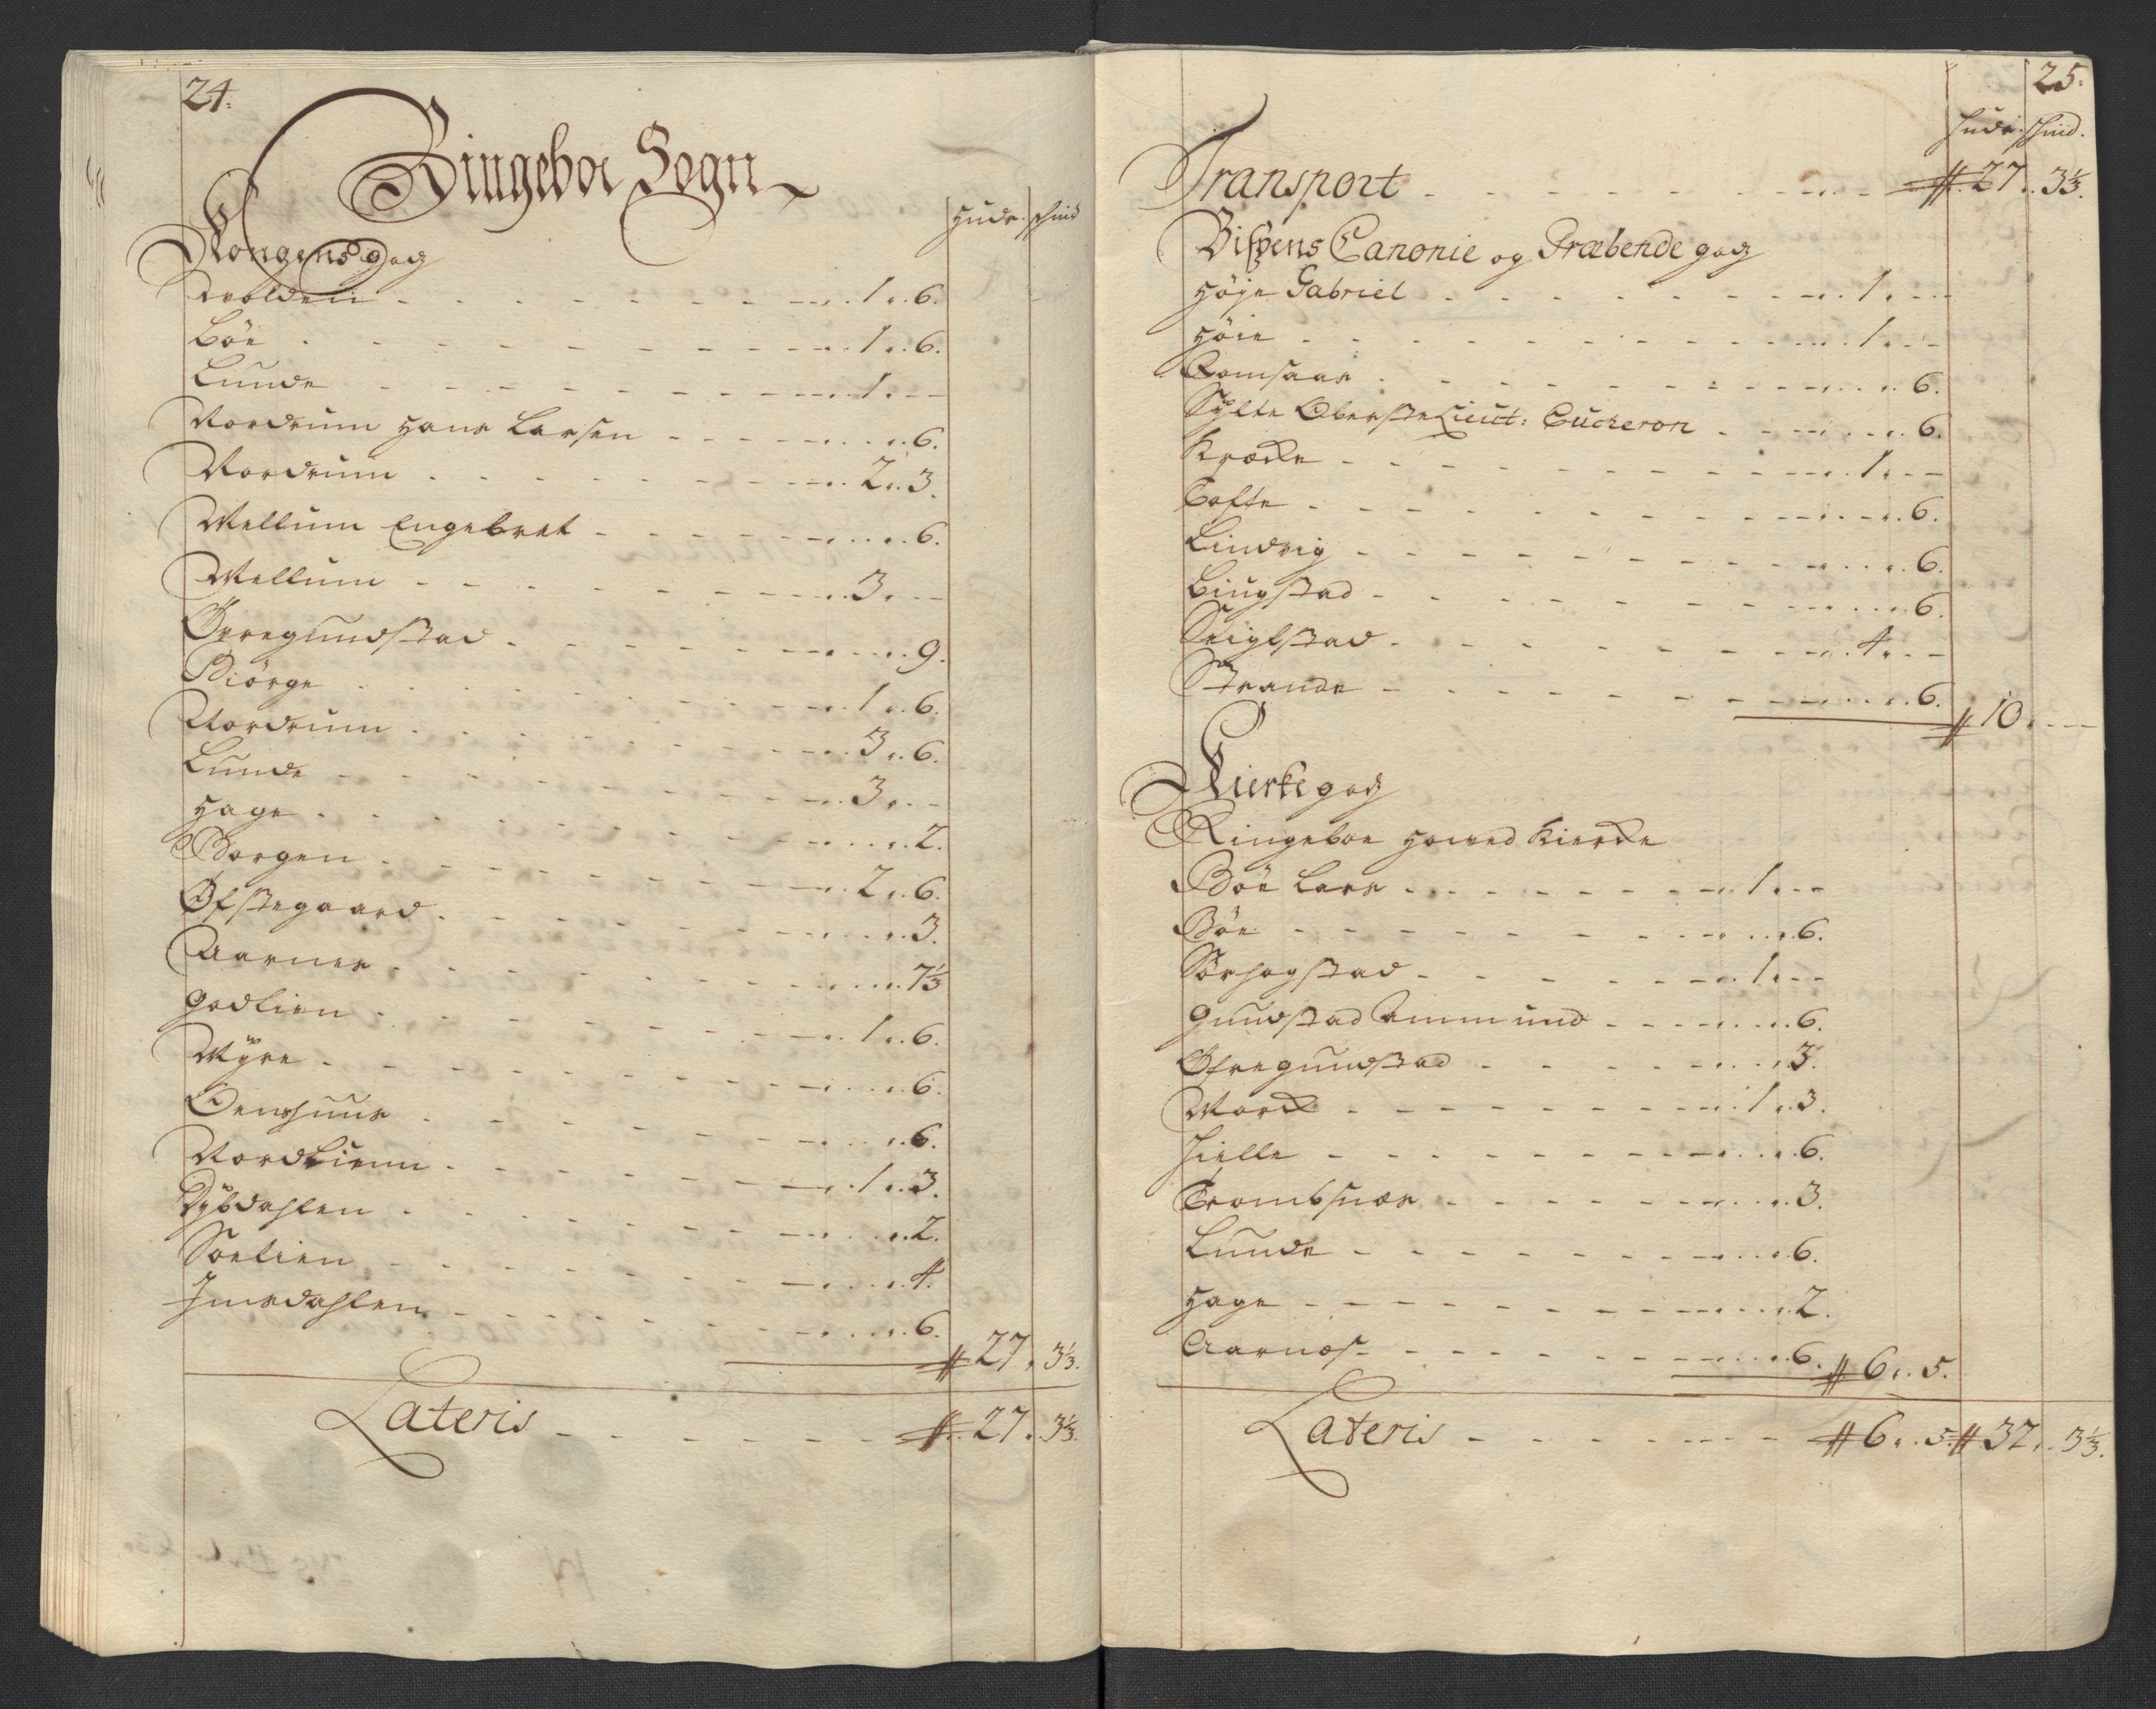 24.
Ringeboe Sogn
Hude. schind
Kongens godz
Volden - - - 1 .. 6.
Böe - - - 1 .. 6.
Lunde - - - 1. - -
Nordrum Hans Larsen - - - 6.
Nordrum - - - 2 .. 3.
Mellum Engebret - - - 6.
Mellum - - - 3. - -
Øvregundstad - - - 9.
Biörge - - - 1 .. 6.
Nordrum - - - 3 .. 6.
Lunde - - - 3. - -
Hage - - - 2.
Borgen - - - 2 .. 6.
Øfstegaard - - - 3.
Aarnes - - - 7⅓
Godlien - - - 1 .. 6.
Myre - - - 6.
Oenshuus - - - 6.
Nordlienn - - - 1 .. 3.
Dybdahlen - - - 2.
Soelien - - - 4.
Imsdahlen - - - 6.
# 27. 3⅓.
Lateris - - - #. 27. 3⅓.
25.
Hude. schind.
Transport - - - #. 27. 3⅓.
Bispens Canonie og Præbende godz
Höye Gabriel - - - 1. - -
Höie - - - 1. - -
Romsaas - - - 6.
Sylte Oberste Lieut: Cucheron - - - 6.
Krocke - - - 1. - -
Tofte - - - 6.
Lindvig - - - 6.
Biugstad - - - 6.
Seiglstad - - - 4. - -
Strande - - - 6.
# 10. - -
Kierke godz
Ringeboe Howed Kierke
Böe Lars - - - 1. - -
Böe - - - 6.
Sörhogstad - - - 1. - -
Gundstad Ammund - - - 6.
Øfregundstad - - - 3.
Morck - - - 1 .. 3.
Hielle - - - 6.
Trombsnæs - - - 3.
Lunde - - - 6.
Hage - - - 2.
Aarnes - - - 6. # 6 .. 5.
Lateris - - - # 6 .. 5 # 37 .. 3⅓.